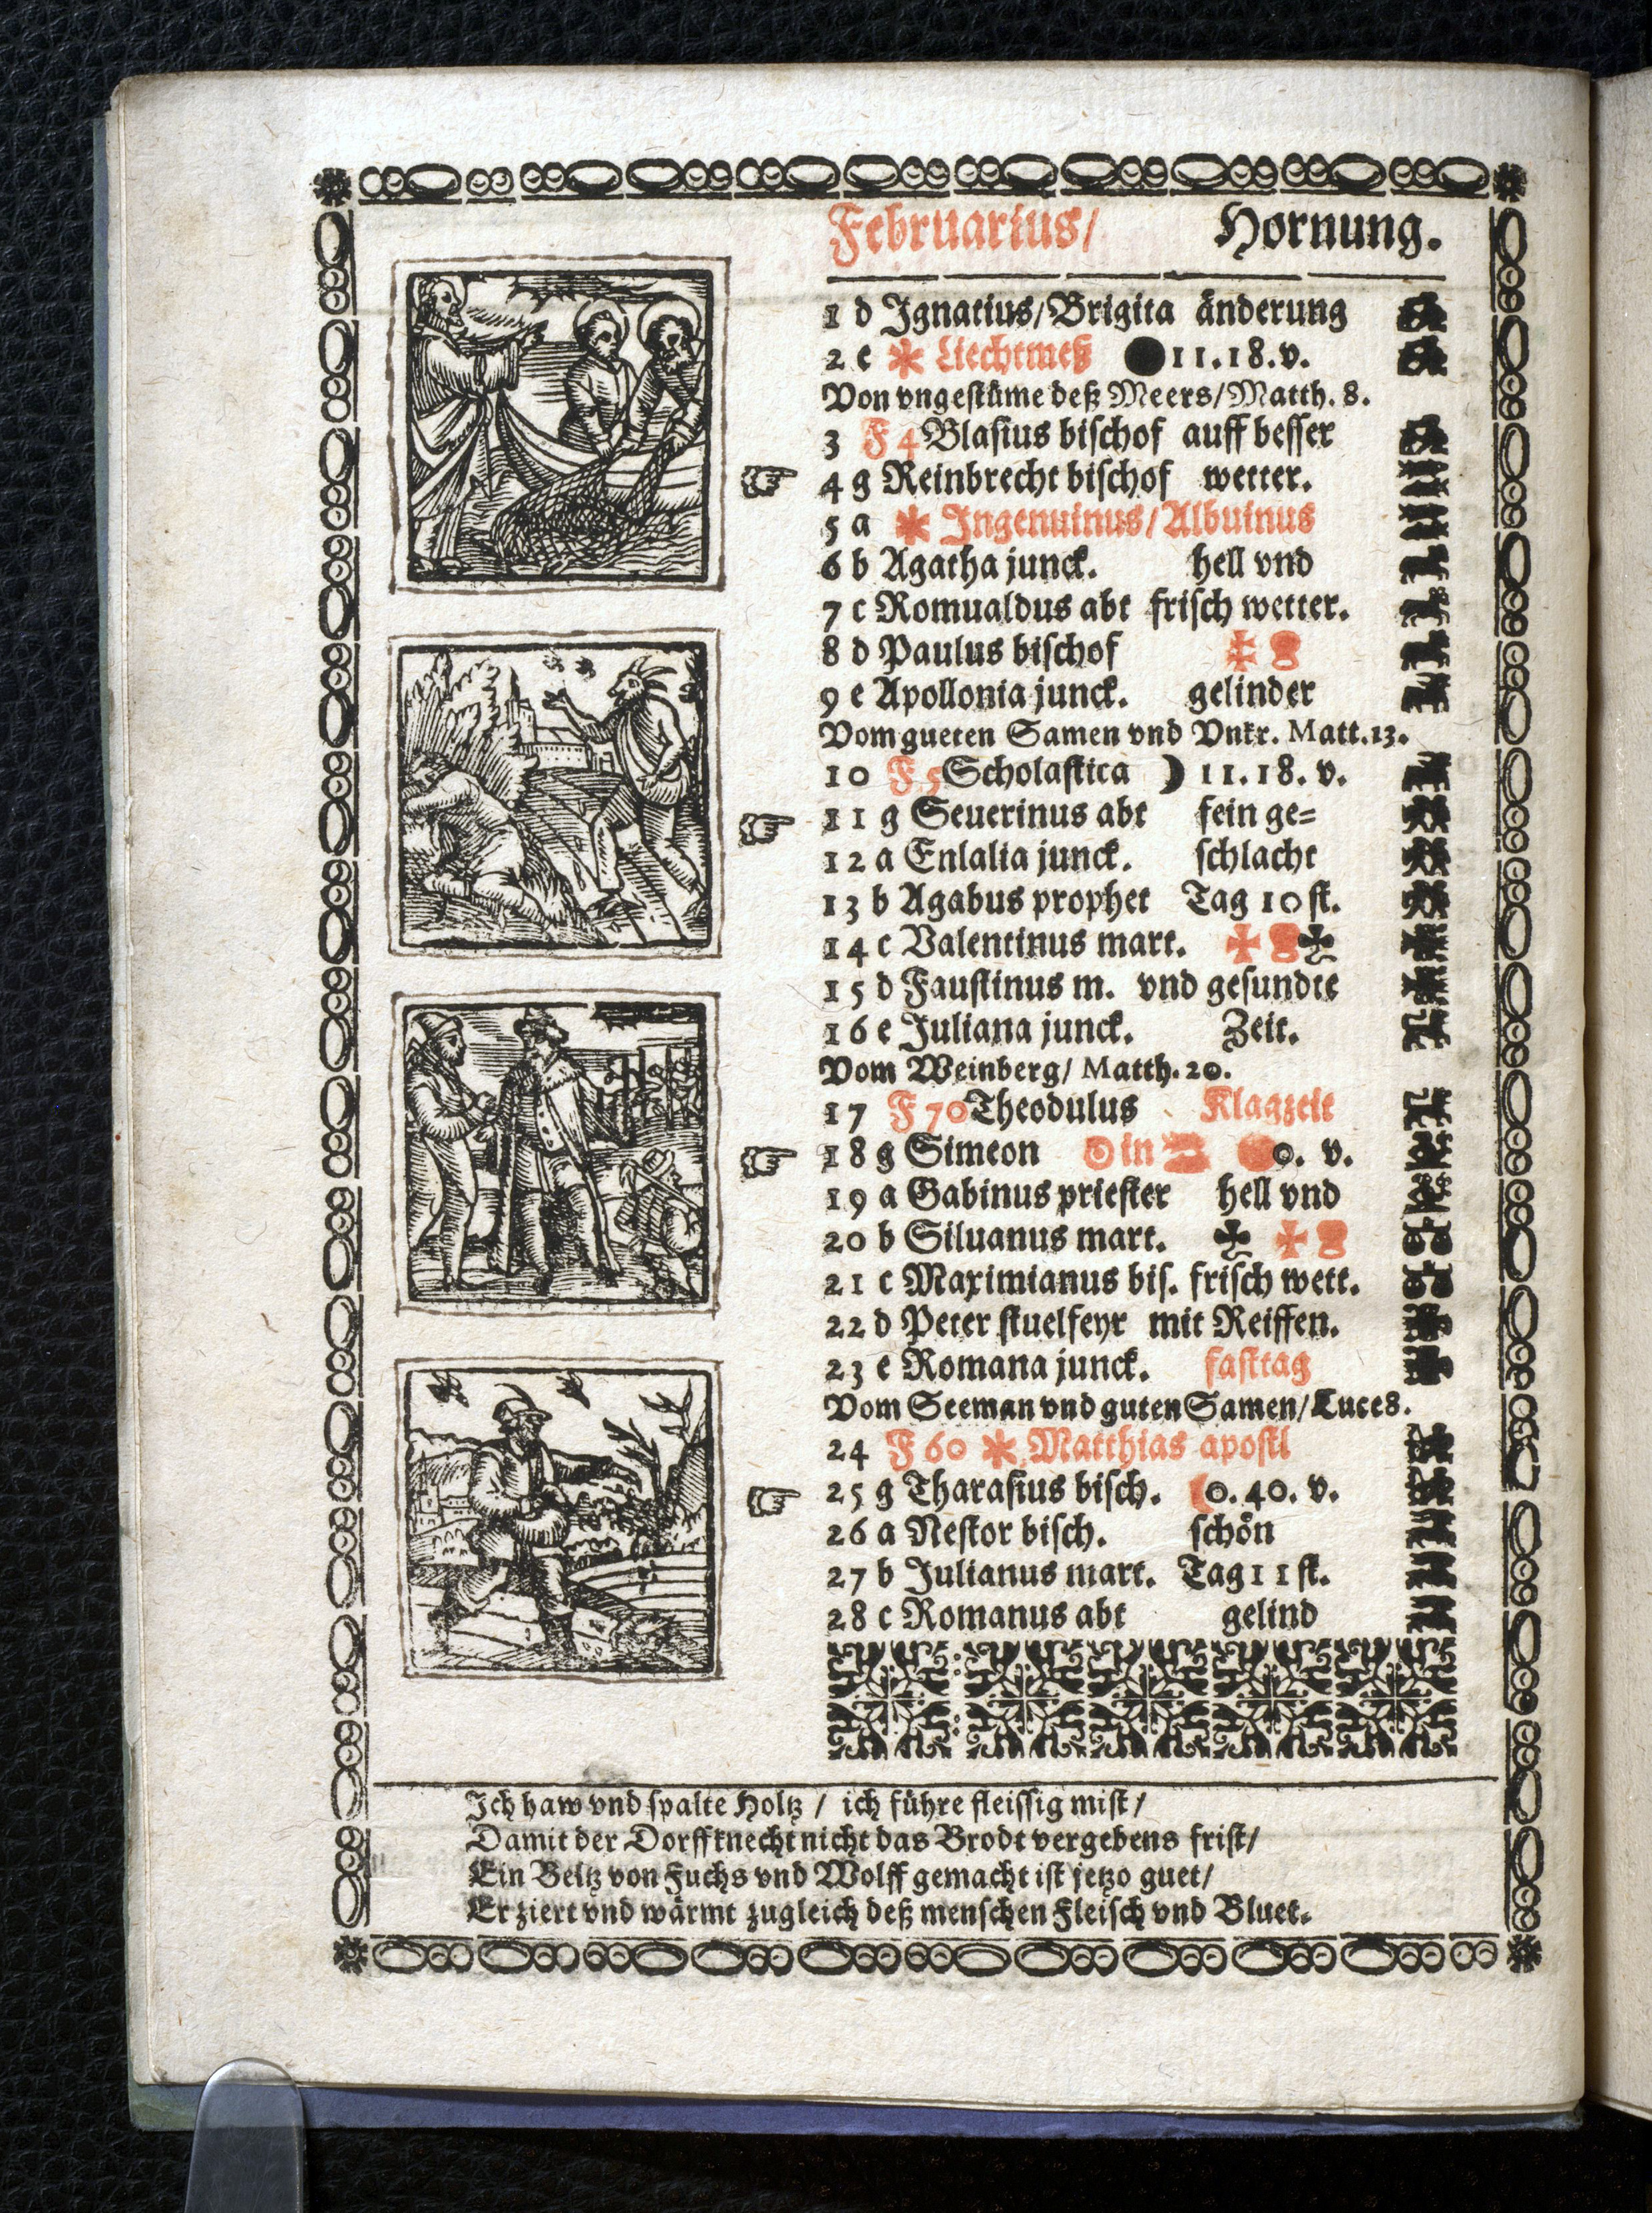 Februarius/ Hornung.
1 d Ignatius/Brigita änderung
2 e Liechtmeß 11.18.v.
Von vngestüme deß Meers/Matth. 8.
3 F 4 Blasius bischof auff besser
4 g Reinbrecht bischof wetter.
5 a Ingenuinus/Albuinus
6 b Agatha junck. hell vnd
7 c Romualdus abt frisch wetter.
8 d Paulus bischof
9 e Apollonia junck. gelinder
Vom gueten Samen vnd Vnkr. Matt.13.
10 F 5 Scholastica 11.18. v.
11 g Seuerinus abt fein ge=
12 a Enlalia junck. schlacht
13 b Agabus prophet Tag 10 st.
14 c Valentinus mart.
15 d Faustinus m. vnd gesundte
16 e Juliana junck. Zeit.
Vom Weinberg/ Matth.20.
17 F 70 Theodulus Klagzeit
18 g Simeon in 0. v.
19 a Gabinus priester hell vnd
20 b Siluanus mart.
21 c Maximianus bis. frisch wett.
22 d Peter stuelfeyr mit Reiffen.
23 e Romana junck. fasttag
Vom Seeman vnd guten Samen/Luce8.
24 F 60 Matthias apostl
25 g Tharasius bisch. 0. 40. v.
26 a Nestor bisch. schön
27 b Julianus mart. Tag 11 st.
28 c Romanus abt gelind
Ich haw vnd spalte Holtz / ich führe fleissig mist/
Damit der Dorffknecht nicht das Brodt vergebens frist/
Ein Beltz von Fuchs vnd Wolff gemacht ist jetzo guet/
Er ziert vnd wärmt zugleich deß menschen Fleisch vnd Bluet.